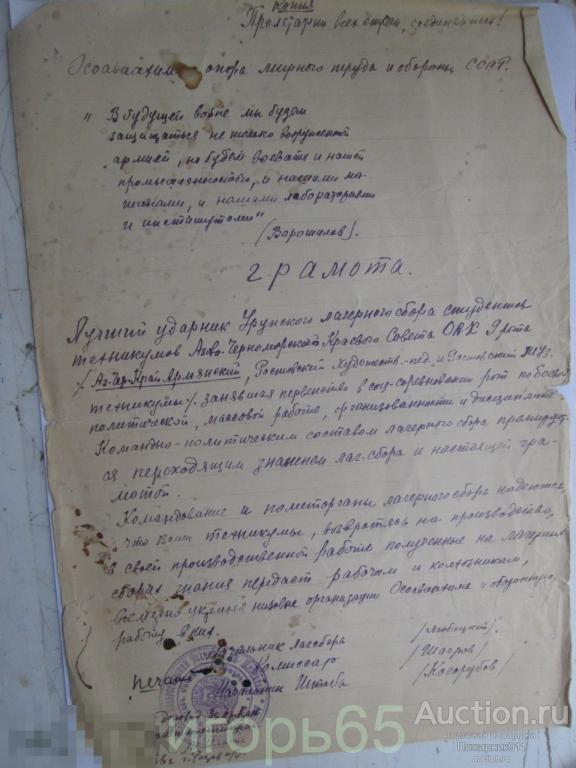 Копия
Пролетарии всех стран, соединяйтесь!
Осоавиахим - опора мирного труда и обороны СССР.
"В будущей войне мы будем
защищаться не только вооруженной
армией, но будем воевать и нашей
промышленностью, и нашими ма-
шинами, и нашими лабораториями
и институтами"
(Ворошилов).
грамота.
Лучший ударник Урупского лагерного сбора студентов
техникумов Азово-Черноморского Краевого Совета ОАХ 9 рота
/Аз-Чер Край Армянский, Ростовский Художеств.-пед. и Ростовский
техникумы/. занявшая первенство в соц-соревновании рот по боевой
политической, массовой работе, организованности и дисциплине
Командно-политическим составом лагерного сбора премирует-
ся переходящим знаменем лаг.сбора и настоящей гра-
мотой.
Командование и политорганы лагерного сбора надеются,
что Ваши техникумы, возвратясь на производство,
в своей производственной работе полученные на лагерных
сборах знания передаст рабочим и колхозникам,
всемерно укрепив низовые организации Осоавиахима и оборонную
работу в них.
Начальник лагсбора /Любицкий/.
Комиссар /Шагров/
печать Начальник Штаба /Косорубов/
игорь65
Auction.ru
торговая площадка
Пожарник911
auction.ru